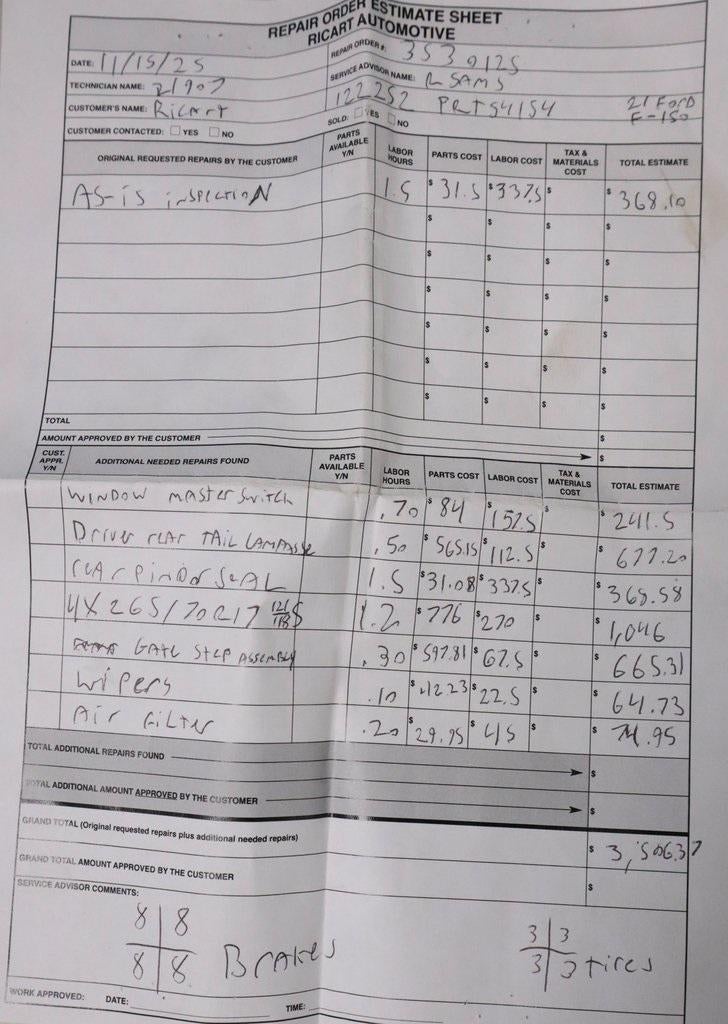 REPAIR ORDER ESTIMATE SHEET
RICART AUTOMOTIVE
DATE: 11/15/25 REPAIR ORDER #: 3530125
TECHNICIAN NAME: 21907 SERVICE ADVISOR NAME: R SAMS
CUSTOMER'S NAME: Ricart 122252 PRT54154 21 Ford F-150
CUSTOMER CONTACTED: YES NO SOLD: YES NO
ORIGINAL REQUESTED REPAIRS BY THE CUSTOMER PARTS AVAILABLE Y/N LABOR HOURS PARTS COST LABOR COST TAX & MATERIALS COST TOTAL ESTIMATE
AS-is inspection 1.5 $31.5 $337.5 $ $368.10
$ $ $ $
$ $ $ $
$ $ $ $
$ $ $ $
$ $ $ $
$ $ $ $
TOTAL $
AMOUNT APPROVED BY THE CUSTOMER $
CUST. APPR. Y/N ADDITIONAL NEEDED REPAIRS FOUND PARTS AVAILABLE Y/N LABOR HOURS PARTS COST LABOR COST TAX & MATERIALS COST TOTAL ESTIMATE
WINDOW master switch .70 $84 $157.5 $ $241.5
Driver rear TAIL LAMP .50 $565.15 $112.5 $ $677.20
rear pinion SEAL 1.5 $31.08 $337.5 $ $368.58
4X 265/70R17 121/118 S 1.2 $776 $270 $ $1,046
GATE STEP ASSEMBLY .30 $597.81 $67.5 $ $665.31
Wipers .10 $42.23 $22.5 $ $64.73
Air Filter .20 $29.95 $45 $ $74.95
TOTAL ADDITIONAL REPAIRS FOUND $
TOTAL ADDITIONAL AMOUNT APPROVED BY THE CUSTOMER $
GRAND TOTAL (Original requested repairs plus additional needed repairs) $3,506.37
GRAND TOTAL AMOUNT APPROVED BY THE CUSTOMER $
SERVICE ADVISOR COMMENTS:
8 8 3 3
8 8 Brakes 3 3 tires
WORK APPROVED: DATE: TIME: